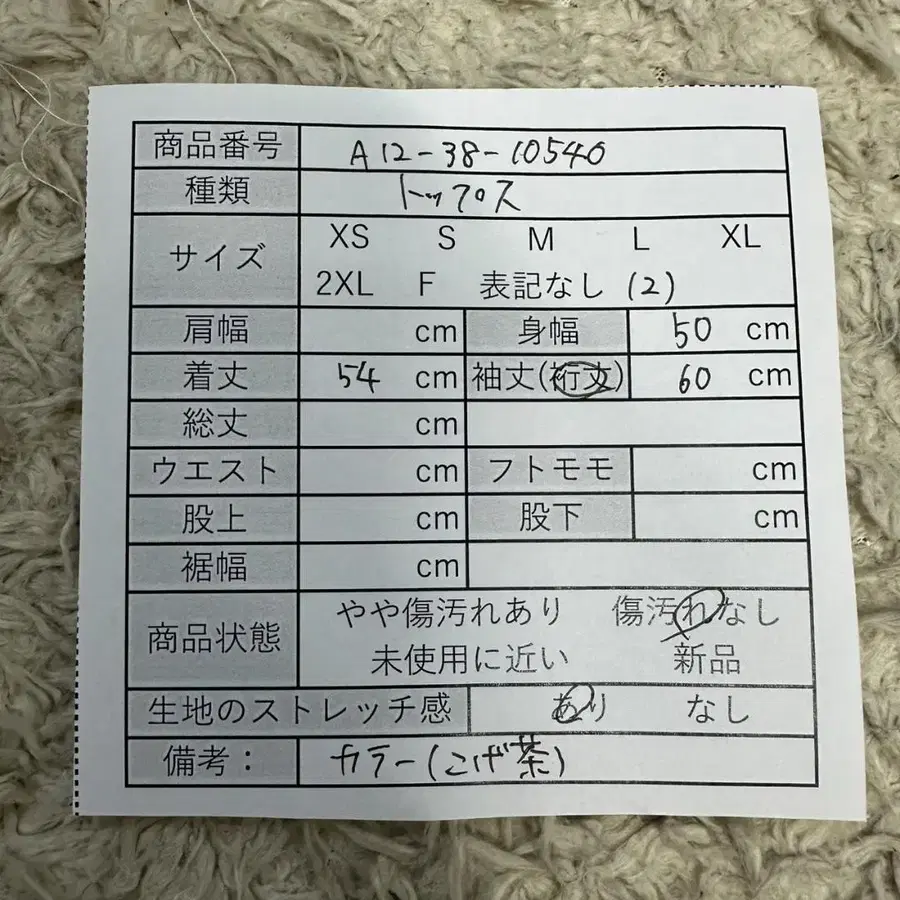 商品番号 A12-38-10540
種類 トップス
サイズ XS S M L XL
2XL F 表記なし (2)
肩幅 cm 身幅 50 cm
着丈 54 cm 袖丈(裄丈) 60 cm
総丈 cm
ウエスト cm フトモモ cm
股上 cm 股下 cm
裾幅 cm
商品状態 やや傷汚れあり 傷汚れなし
未使用に近い 新品
生地のストレッチ感 あり なし
備考: カラー(こげ茶)